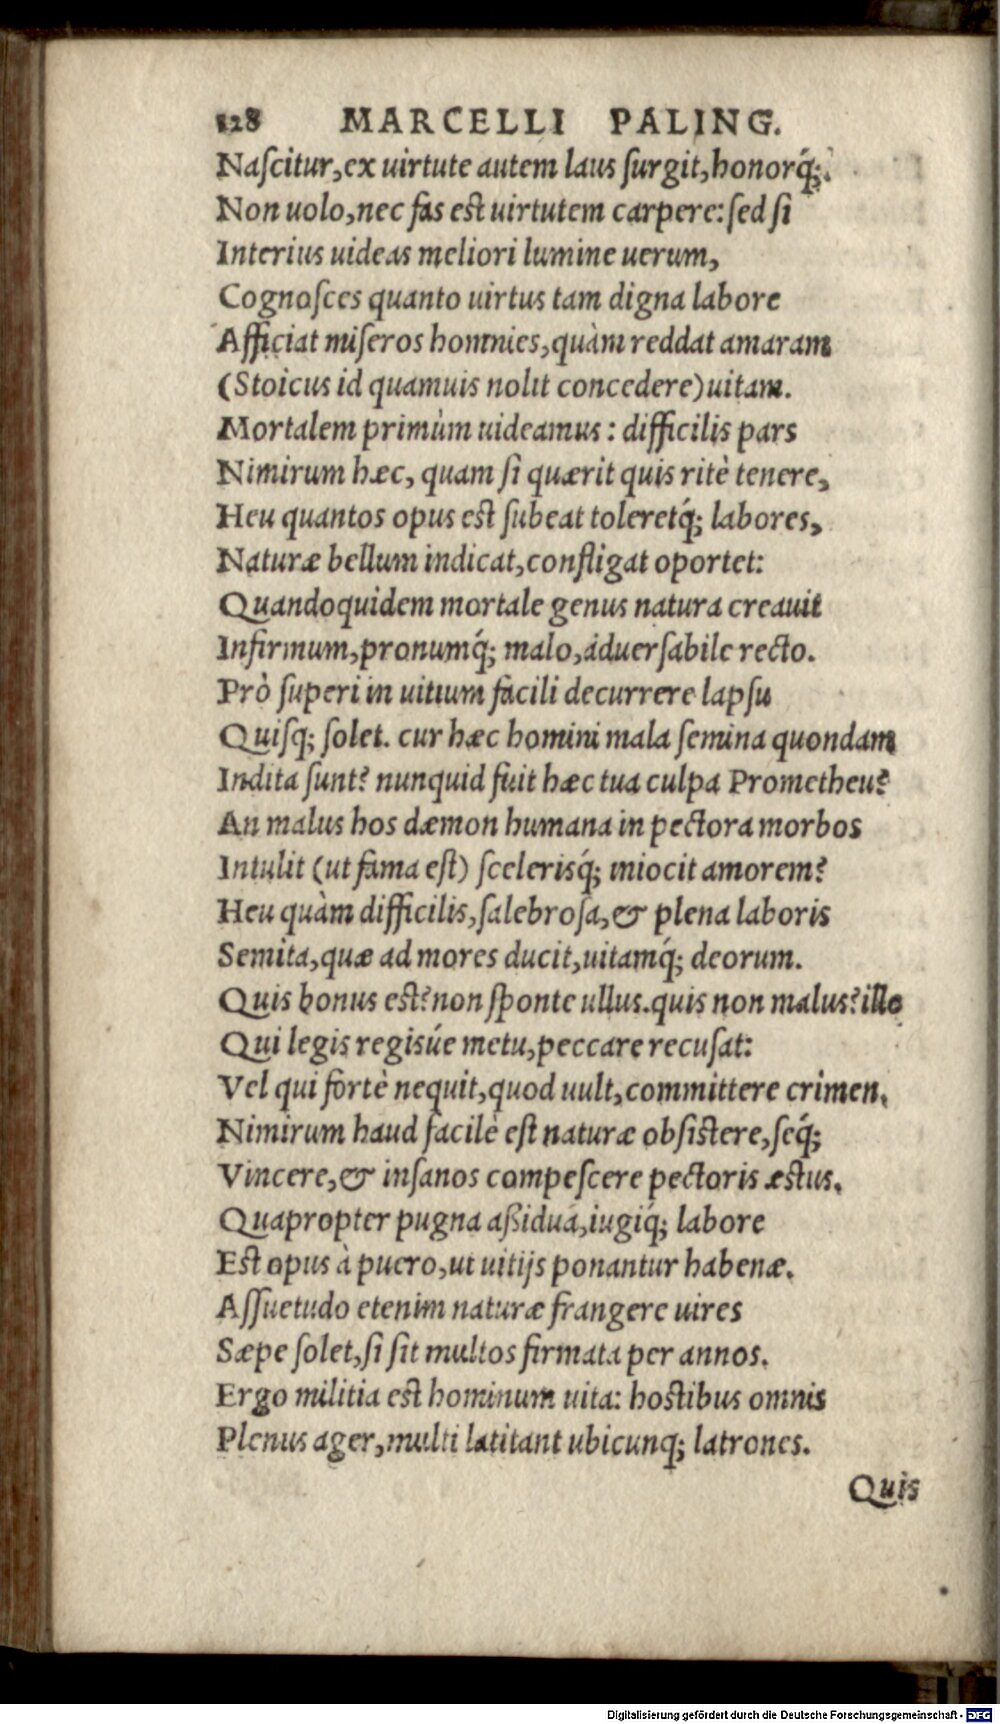 128 MARCELLI PALING.
Naſcitur,ex uirtute autem laus ſurgit,honorq́;.
Non uolo,nec fas est uirtutem carpere: ſed ſi
Interius uideas meliori lumine uerum,
Cognoſces quanto uirtus tam digna labore
Afficiat miſeros homines,quàm reddat amaram
(Stoicus id quamuis nolit concedere)uitam.
Mortalem primùm uideamus: difficilis pars
Nimirum hæc, quam ſi quærit quis ritè tenere,
Heu quantos opus est ſubeat toleretq́; labores,
Naturæ bellum indicat,confligat oportet:
Quandoquidem mortale genus natura creauit
Infirmum,pronumq́; malo,áduerſabile recto.
Prò ſuperi in uitium facili decurrere lapſu
Quiſq; ſolet. cur hæc homini mala ſemina quondam
Indita ſunt? nunquid fuit hæc tua culpa Prometheu?
An malus hos dæmon humana in pectora morbos
Intulit (ut fama eſt) ſceleriſq́; iniocit amorem?
Heu quàm difficilis,ſalebroſa,& plena laboris
Semita,quæ ad mores ducit,uitamq́; deorum.
Quis bonus est?non ſponte ullus.quis non malus?ille
Qui legis regisúe metu,peccare recuſat:
Vel qui fortè nequit,quod uult,committere crimen.
Nimirum haud facilè eſt naturæ obſistere,ſeq́;
Vincere,& inſanos compeſcere pectoris æstus.
Quapropter pugna aßiduá,iugiq́; labore
Est opus à puero,ut uitijs ponantur habenæ.
Aſſuetudo etenim naturæ frangere uires
Sæpe ſolet,ſi ſit multos firmata per annos.
Ergo militia est hominum uita: hostibus omnis
Plenus ager,multi latitant ubicunq; latrones.
Quis
Digitalisierung gefördert durch die Deutsche Forschungsgemeinschaft - DFG